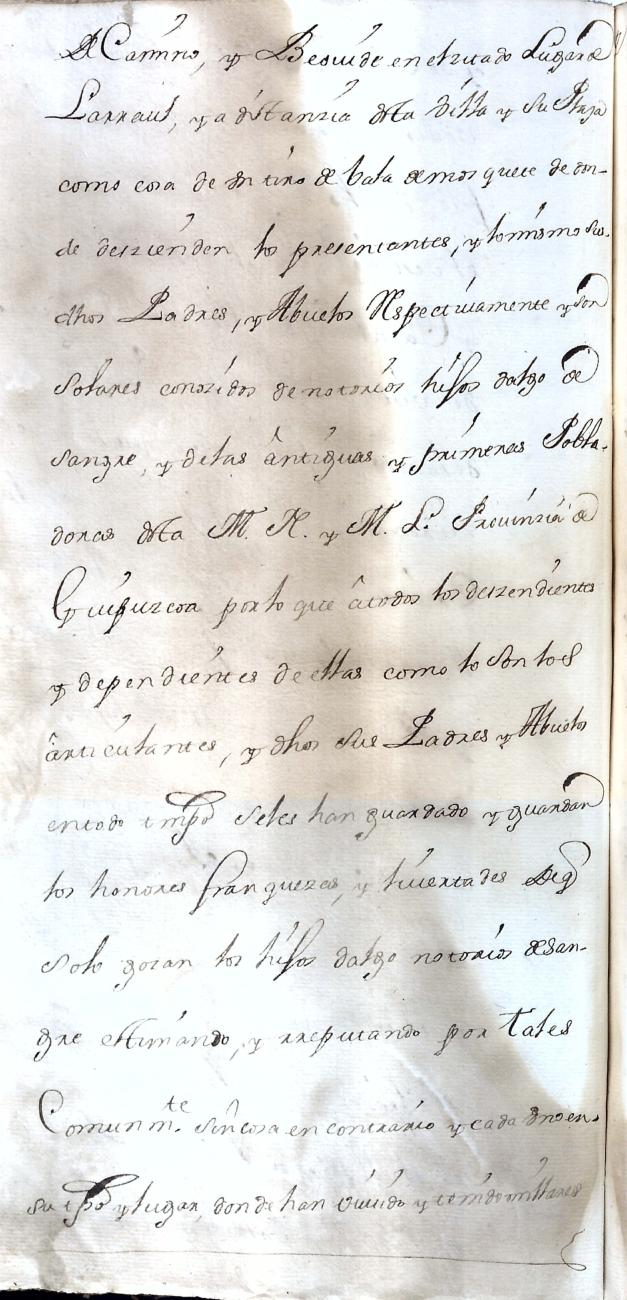 de Camino, y Besuide en el zitado Lugar de
Larraul, y a distanzia desta Villa y su Plaza
como cosa de Vn tiro de bala de mosquete de don-
de deszienden los presentantes, y lo mismo sus
dhos Padres, y Abuelos Respectiuamente y son
Solares conozidos de notorios hijos dalgo de
sangre, y de las antiguas y primeras Pobla-
doras desta M. N. y M. L. Prouinzia de
Guipuzcoa por lo que a todos los deszendientes
y dependientes de ellas como lo son los
articulantes, y dhos sus Padres y Abuelos
en todo tmpo se les han guardado y guardan
los honores franquezas, y liuertades de q
solo gozan los hijos dalgo notorios de San-
gre estimando, y rreputando por tales
Comunmte. sin cosa en contrario y cada Vno en
su tpo y lugar, donde han viuido y tenido millares